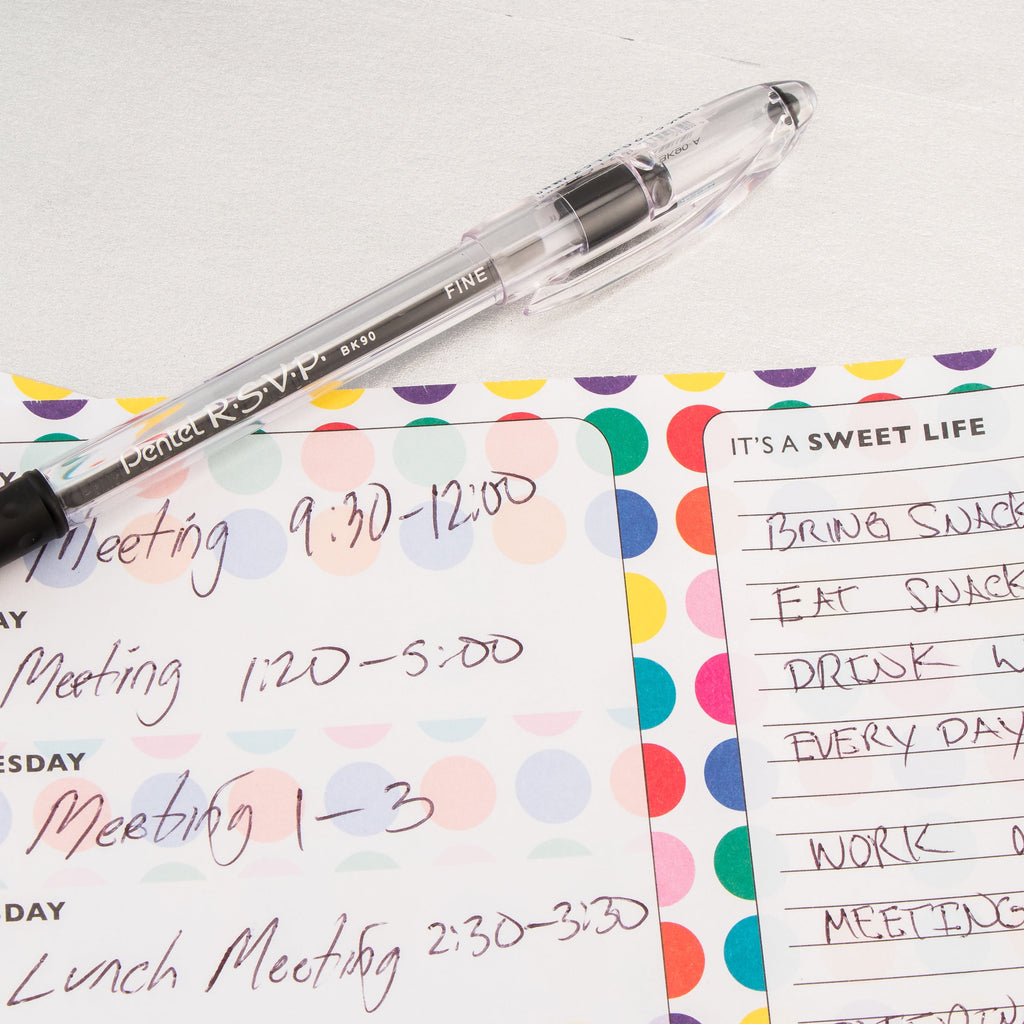 FINE
BK90
Pentel R·S·V·P.
Y
Meeting 9:30-12:00
AY
Meeting 1:20-5:00
ESDAY
Meeting 1-3
SDAY
Lunch Meeting 2:30-3:30
IT'S A SWEET LIFE
BRING SNACK
EAT SNACK
DRINK W
EVERY DAY
WORK
MEETING